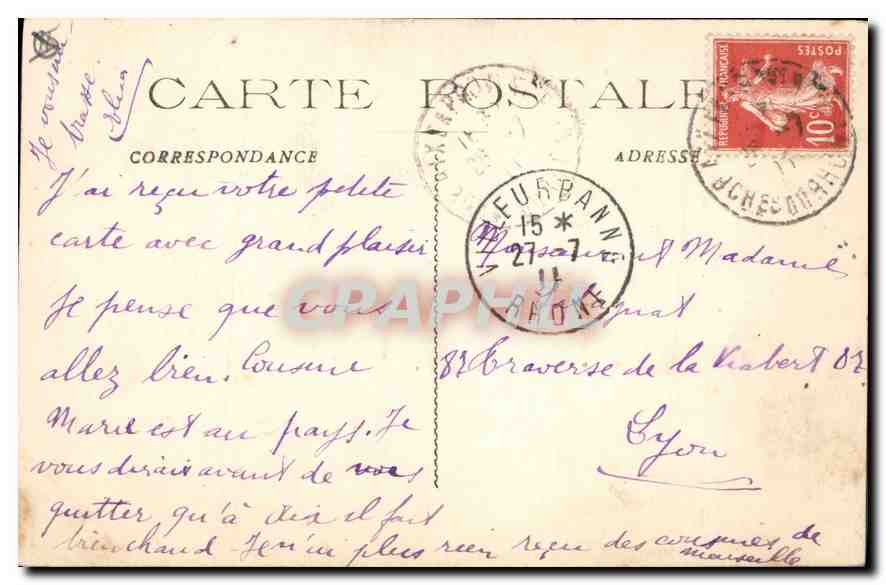 CARTE POSTALE
CORRESPONDANCE
ADRESSE
J'ai reçu votre petite
carte avec grand plaisir
Je pense que vous
allez bien. Cousine
Marie est au pays. Je
vous dirais avant de vous
quitter qu'à Aix il fait
bien chaud Je n'ai plus rien reçu des cousines de
Marseille
Je vous
Monsieur et Madame
87 Traverse de la Viabert 87
Lyon
VILLEURBANNE
15 *
27 - 7
11
RHONE
REPUBLIQUE FRANÇAISE
POSTES
10c
CPAPHIL